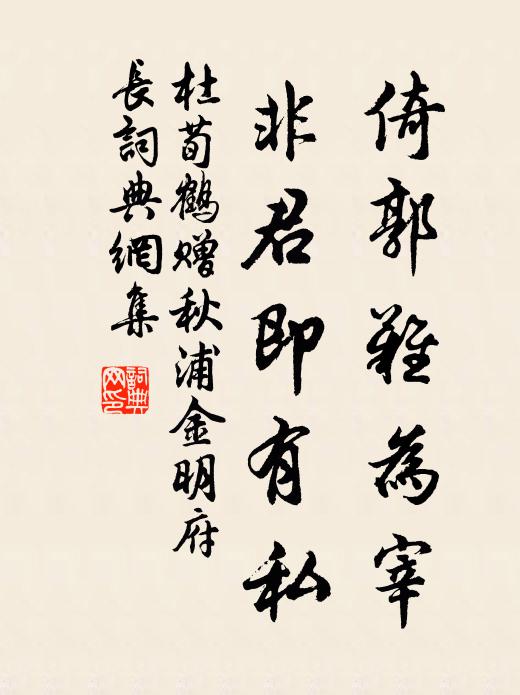 倚郭難為宰
非君即有私
杜荀鶴贈秋浦金明府
長詞典網集
詞典网印